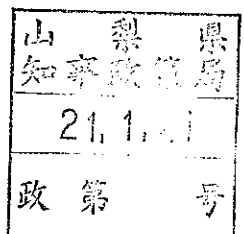 山梨県
知事政策局
21.1.
政第 号